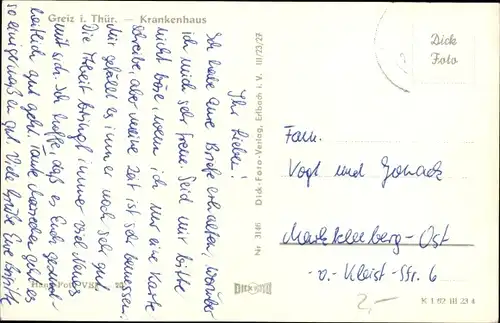 Greiz i. Thür. — Krankenhaus
Ihr Lieben!
Ich habe Eure Briefe erhalten, worüber
ich mich sehr freue. Seid mir bitte
nicht böse, wenn ich nur eine Karte
schreibe, aber meine Zeit ist sehr bemessen.
Mir gefällt es immer noch sehr gut.
Die Arbeit bringt immer viel Neues
mit sich. Ich hoffe, daß es Euch gesund-
heitlich gut geht. Tante geht es
so einigermaßen gut. Viele Grüße Eure
Dick-Foto-Verlag, Erlbach i. V. III/23/27
Nr. 3146
Dick
Foto
Fam.
Vogt und
Markkleeberg-Ost
-v.-Kleist-Str. 6
2,-
K 1/62 III 23 4